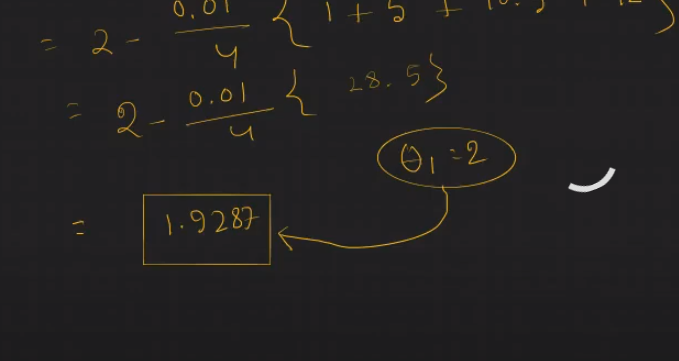 = 2 - 0.01/4 { 1 + 5 + 10.5 + 12 }
= 2 - 0.01/4 { 28.5}
θ₁ = 2
= 1.9287